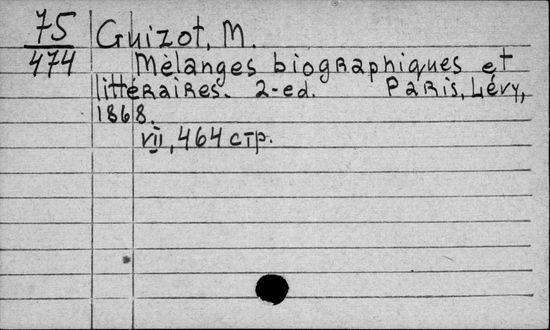 75
474
Guizot, M.
Mélanges biographiques et
littéraires. 2-ed. Paris, Lévy,
1868.
VII, 464 стр.